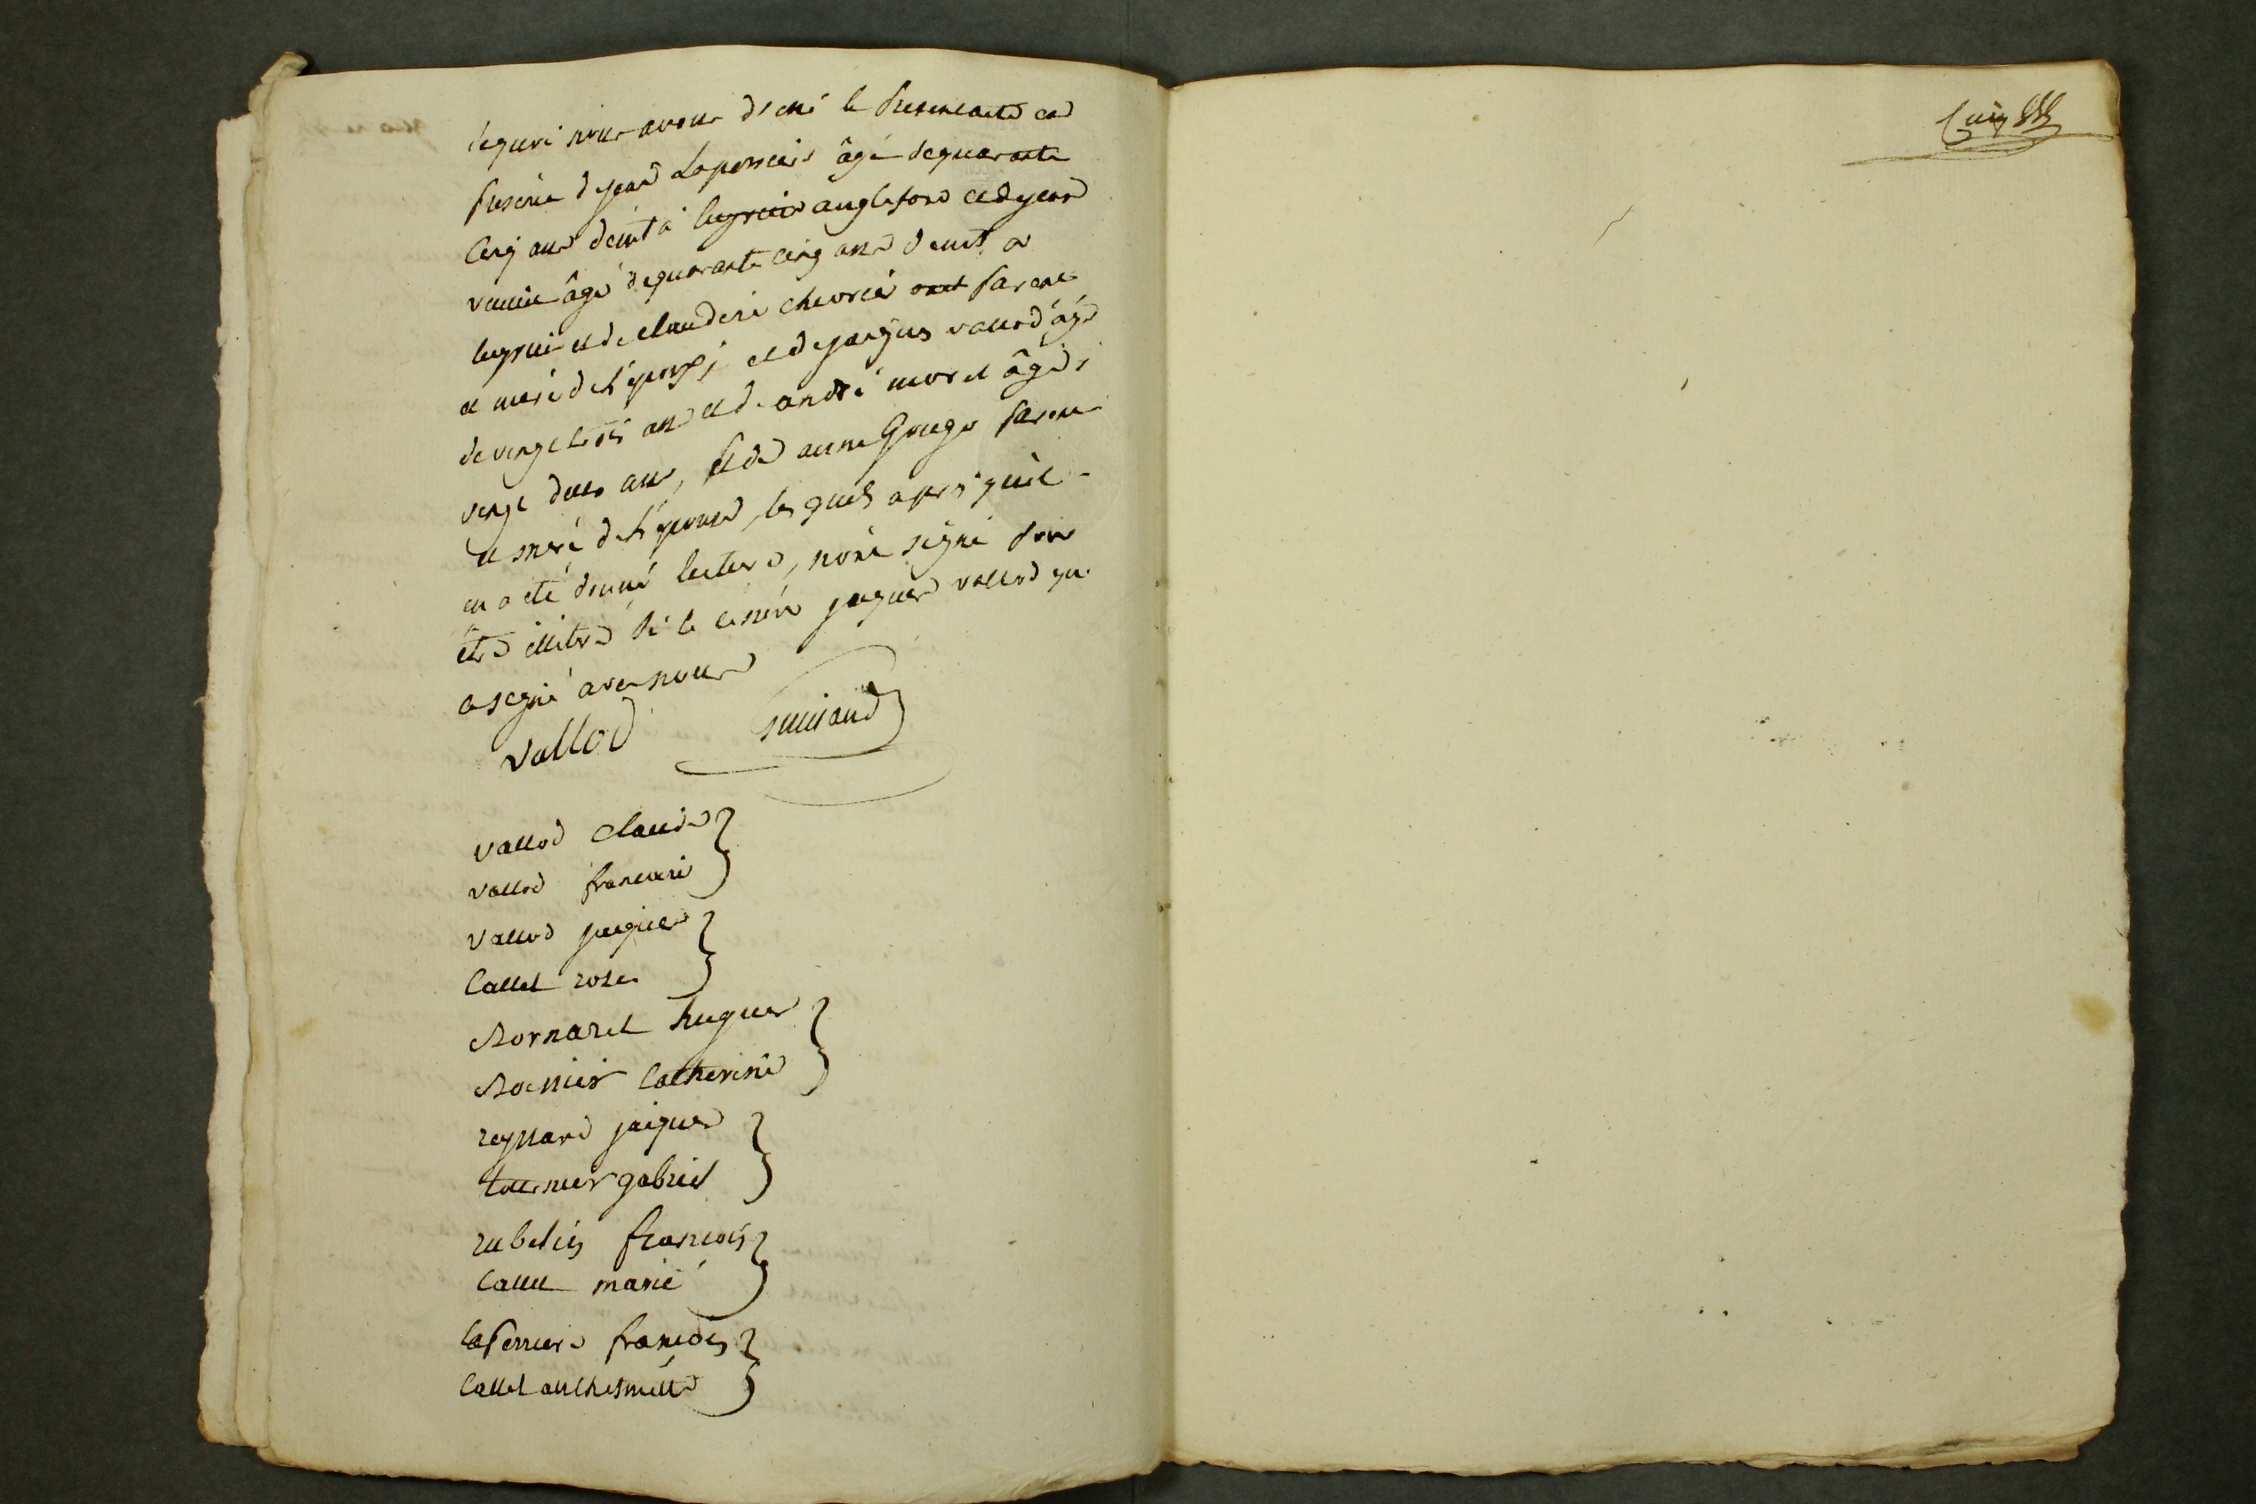 de quoi nous avons dressé le present acte en
presence de jean Laperriere âgé de quarante
cinq ans demt a anglefort et de jean
âgé de quarante cinq ans demt a
et de claudine chevrier parent
et mere de l'epoux, et de jacques vallod âgé
de vingt trois ans et de andré moret âgé
vingt deux ans, et de anne parent
et mere de l'epouse, les quels apres qu'il
en a été donné lecture, n'ont signé pour
être illitré si ce n'est jacques vallod qui
a signé avec nous
vallod
vallod claude
vallod francoise
vallod jacques
Callet rose
Bornarel hugues
catherine
reynard jacques
tournier gabriel
rubelin francois
Callet marie
laperriere francois
Callet anthelmette